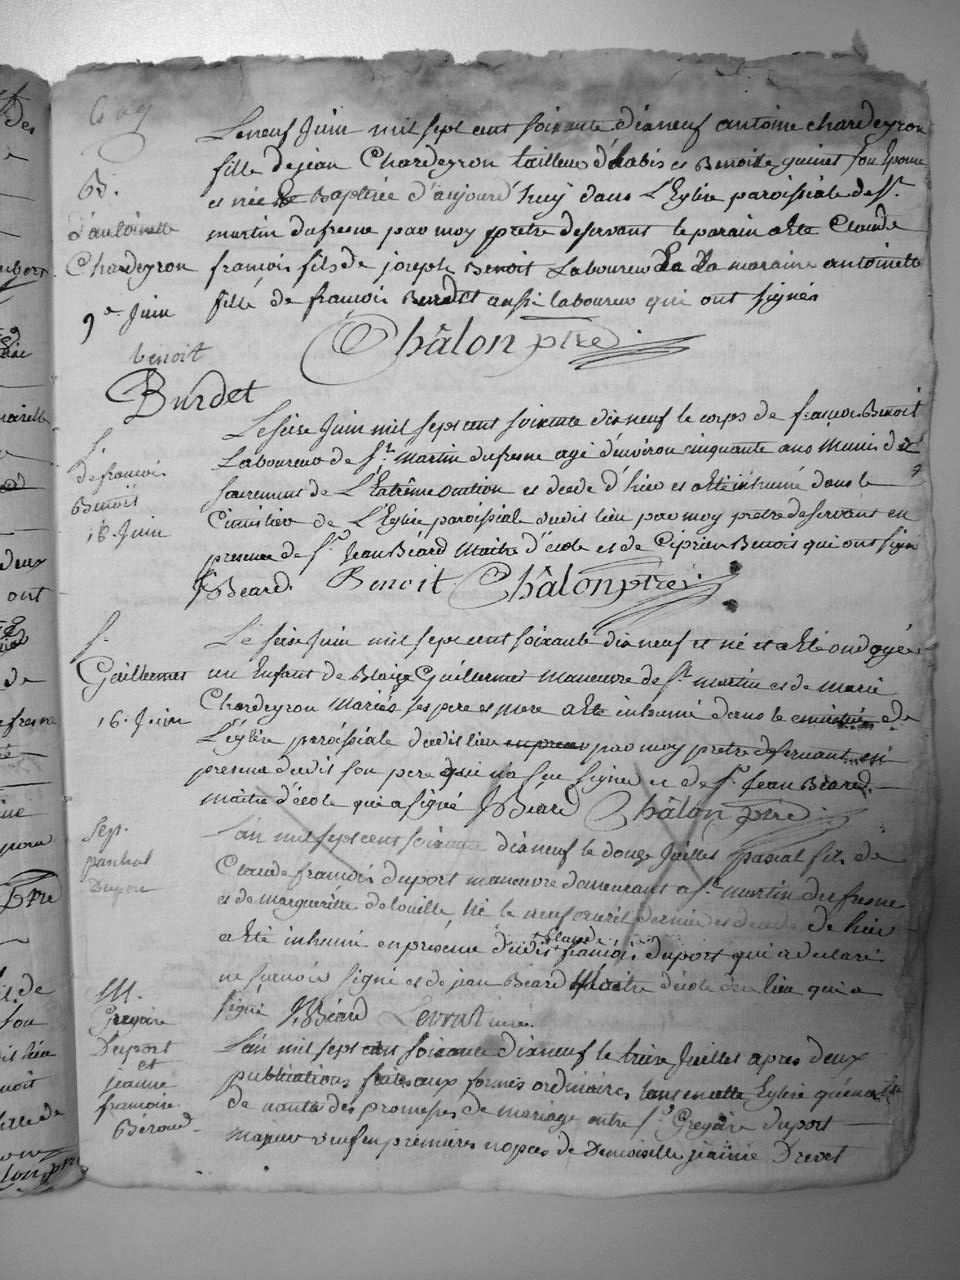 B.
d'antoinette
Chardeyron
9e Juin
Le neuf Juin mil sept cent soixante dixneuf antoine chardeyron
fille de jean Chardeyron tailleur d'habis et Benoite guinet son Epouse
et née Baptisée d'aujourd'huy dans L'Eglise paroissiale de St.
martin dufresne par moy prêtre deservant le parain a Eté Claude
francois fils de joseph Benoit Laboureur La maraine antoinette
fille de francois Burdet aussi laboureur qui ont signés
Châlon ptre
benoit
Burdet
f.
de francois
Benoit
16. Juin
Le seise Juin mil sept cent soixante dixneuf le corps de francois Benoit
Laboureur de St. Martin dufresne agé d'environ cinquante ans Munis de
sacrement de L'Extrême onction est decede d'hier et a Eté inhumé dans le
Cimitier de L'Eglise paroissiale dudit lieu par moy pretre deservant en
presence de Sr. Jean Béard Maitre d'école et de Ciprien Benoit qui ont signé
JBeard Benoit Châlon ptre
f.
Guillermet
16. Juin
Le seise Juin mil sept cent soixante dixneuf est né et a Eté ondoyé
un Enfant de Blaise Guillermet Maneuvre de St. martin et de Marie
Chardeyron Mariés ses pere et Mere a Eté inhumé dans le cimitié de
L'église paroissiale dudit lieu par moy pretre deservant en
presence dudit son pere qui n'a seu signer et de Sr. Jean Béard
maitre d'école qui a signé JBéard Châlon ptre
Sep.
pascal
Duport
L'an mil sept cent soixante dixneuf le douze Juillet pascal fils de
Claude francois duport maneuvre demeurant a St. martin du fresne
et de margueritte delouille né le neuf avril dernier et decede de hier
a Eté inhumé en presence dudit Claude francois duport qui a declaré
ne scavoir signé et de jean Béard Maitre d'école du lieu qui a
signé JBéard
M.
Gregoire
Duport
et
jeanne
francoise
Béroud
L'an mil sept cent soixante dixneuf le treise Juillet apres deux
publications faites aux formes ordinaires tans en cette Eglise qu'en
de nantua des promesses de mariage entre Sr. Gregoire duport
majeur veuf en premieres nopces de Demoiselle jeanne Drevet